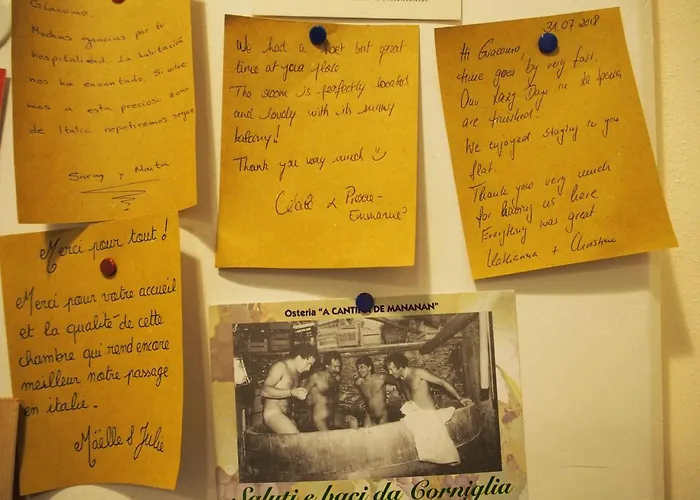 Giacomo.
Muchas gracias por tu
hospitalidad. La habitación
nos ha encantado. Si volve-
mos a esta preciosa zona
de Italia repetiremos seguro
Saray y Marta
We had a but great
time at your place
The room is perfectly located
and lovely with its sunny
balcony!
Thank you very much
& Pierre-
Emmanuel
31.07.2018
Hi Giacomo,
time goes by very fast.
Our Lazy Days in La Spezia
are finished!
We enjoyed staying in you
flat.
Thank you very much
for having us here
Everything was great
+ Christina
Merci pour tout!
Merci pour votre accueil
et la qualité de cette
chambre qui rend encore
meilleur notre passage
en italie.
Maëlle & Julie
Osteria "A CANTINA DE MANANAN"
Saluti e baci da Corniglia